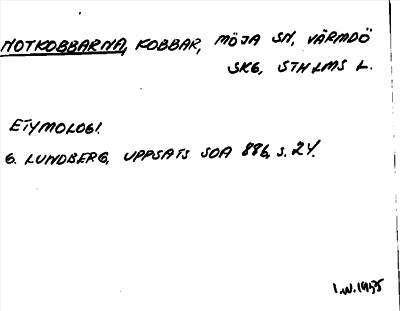 NOTKOBBARNA, KOBBAR, MÖJA SN, VÄRMDÖ
SKG, STHLMS L.
ETYMOLOGI.
G. LUNDBERG, UPPSATS SOA 886, s. 24.
I.W. 1955